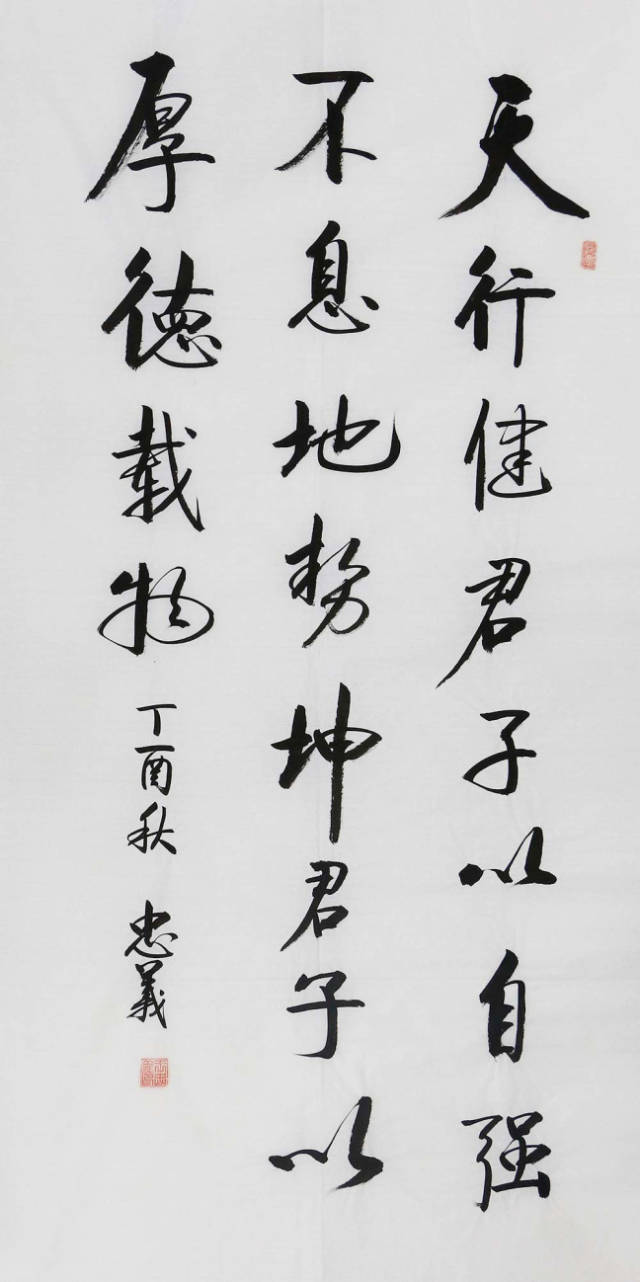 天行健君子以自强
不息地势坤君子以
厚德载物
丁酉秋 忠义